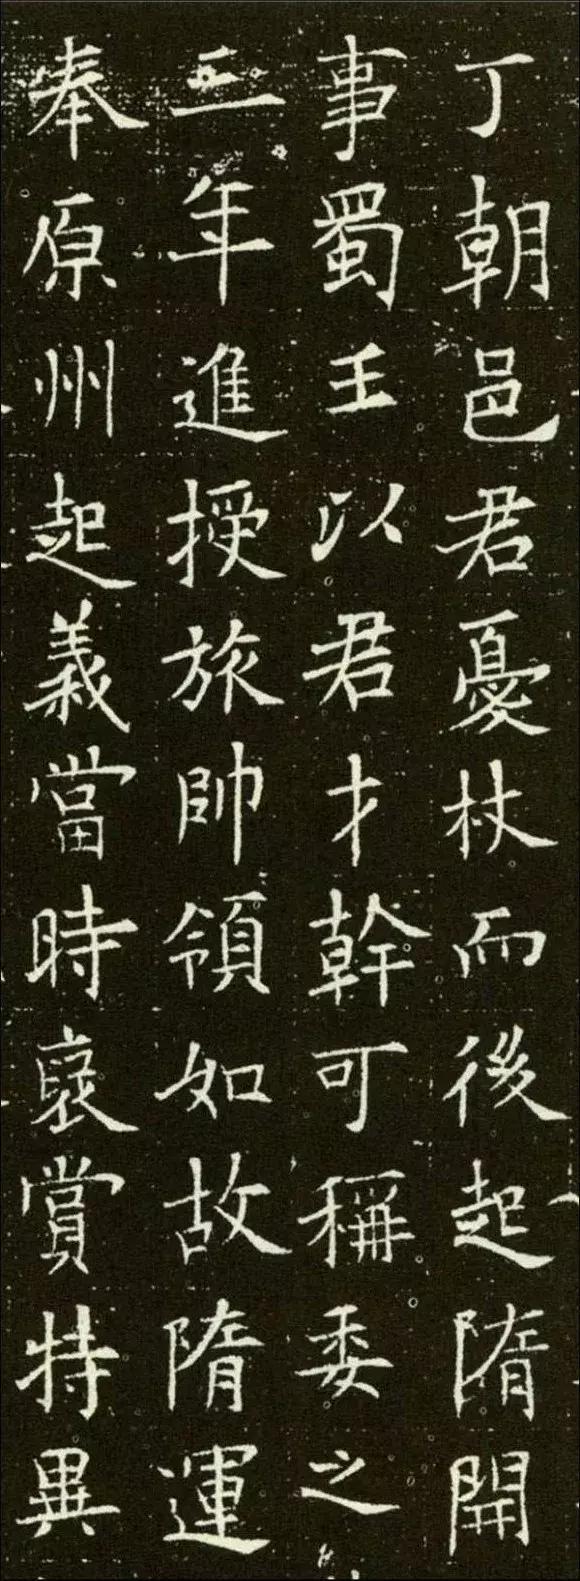 丁朝邑君憂杖而後起隋開
事蜀王以君才幹可稱委之
三年進授旅帥領如故隋運
奉原州起義當時褒賞特異